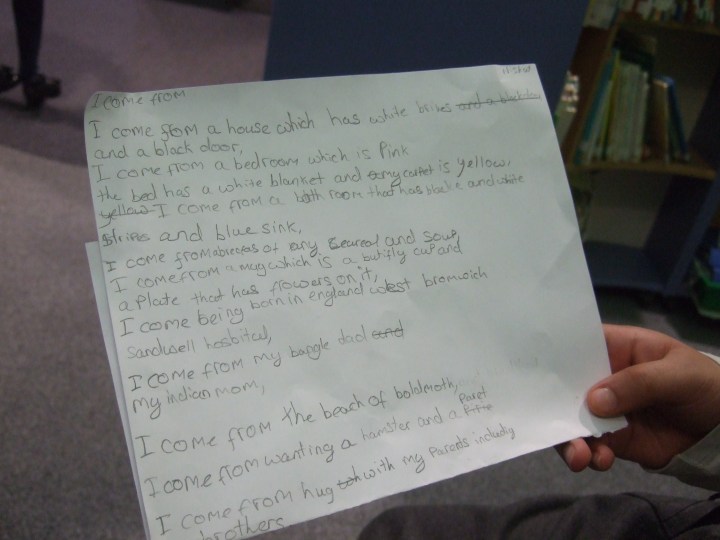 I come from
I come from a house which has white brikes and a black do
and a black door,
I come from a bedroom which is Pink
the bed has a white blanket and my carpet is yellow,
yellow I come from a bath room that has blacke and white
stripes and blue sink,
I come from abieceas of eny Ceareal and soup,
I come from a mug which is a butifly cup and
a Plate that has flowers on it,
I come being born in england west bromwich
Sandwell hosbital,
I come from my bangle dad and
my indian mom,
I come from the beach of boldmoth,
I come from wanting a hamster and a Paret
I come from hug with my Parents includig
brothers